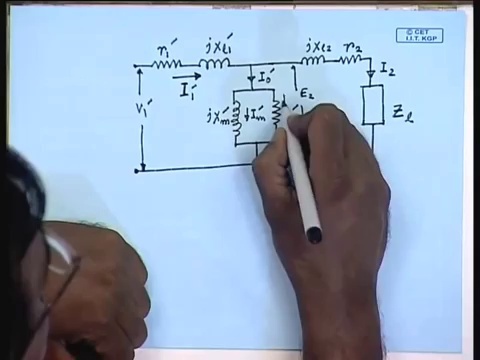 © CET
I.I.T. KGP
r₁' jxₗ₁' jxₗ₂ r₂
I₁' I₀' I₂
V₁' jxₘ' Iₘ' E₂ Zₗ